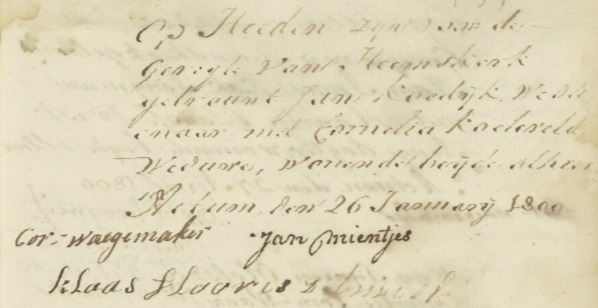 Op Heeden zyn voor de
Geregte van Heemskerk
getrouwt Jan Koedijk Wedu
enaar met Cornelia
Weduwe, wonende beyde alhier
Actum den 26 January 1800
Cor: Waegemaker Jan Mientjes
Klaas Floorisz